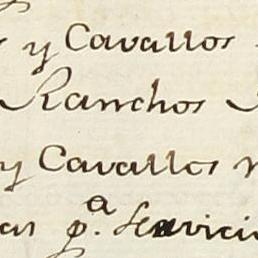 y Cavallos
Ranchos
y Cavalles
p.ª Servicio